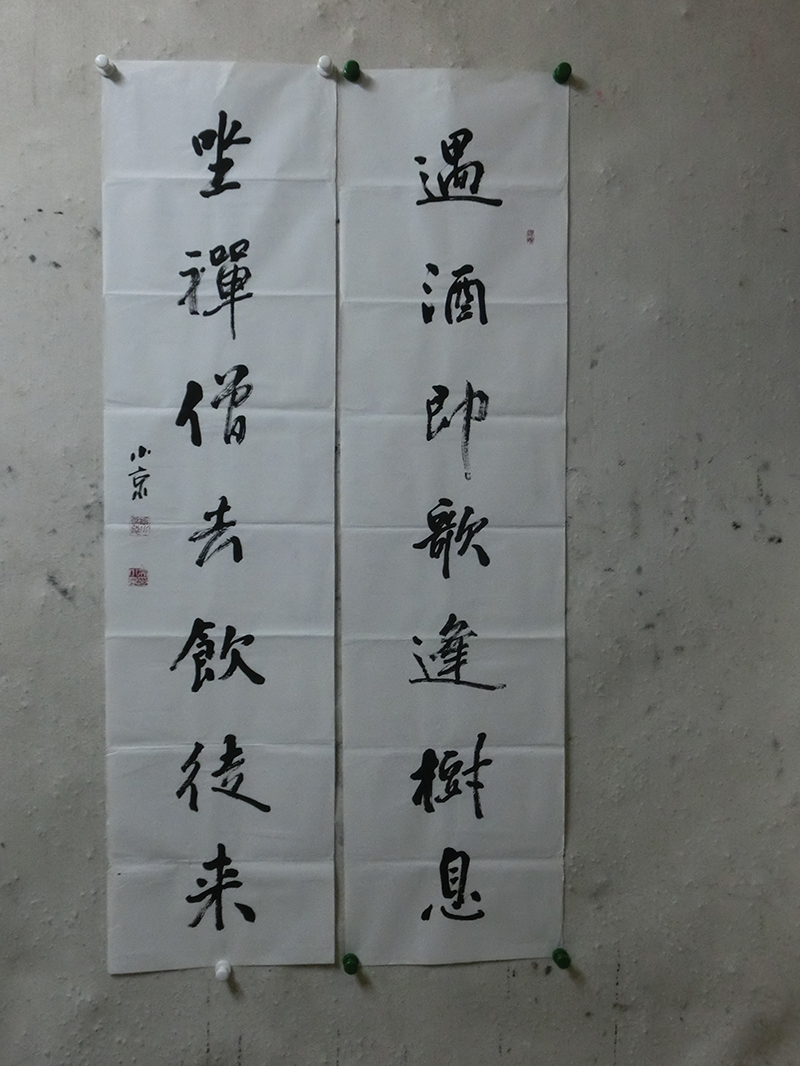 遇酒即歌逢樹息
坐禪僧去飲徒来
小京